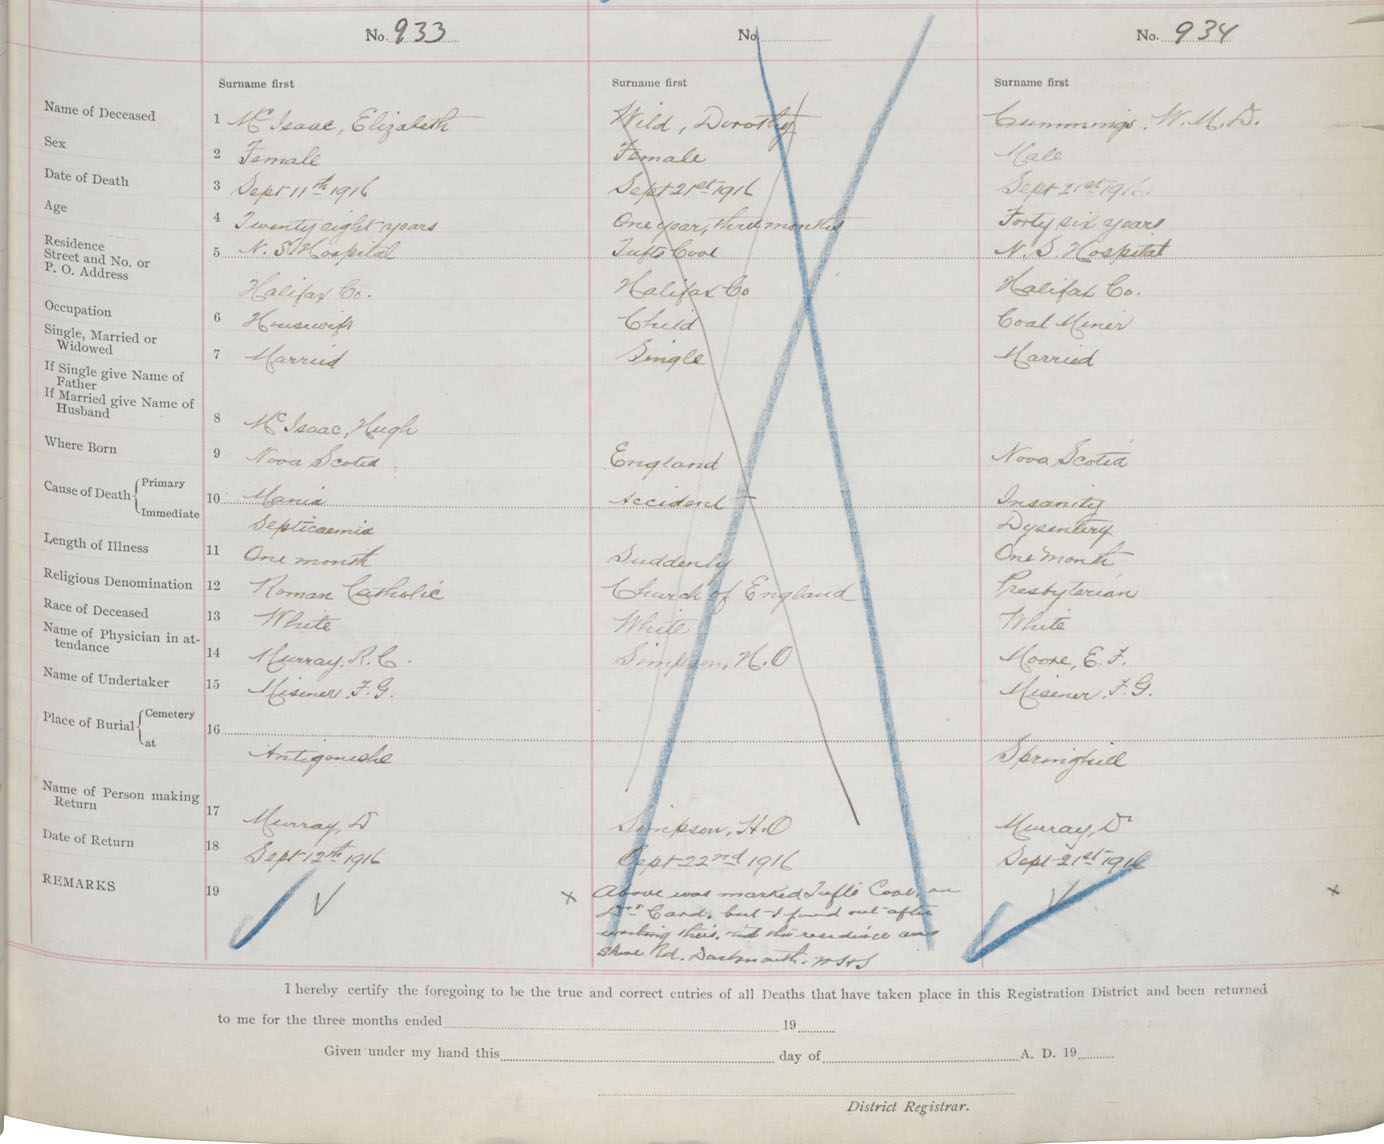 No. 933
No.
No. 934
Surname first
Surname first
Surname first
Name of Deceased 1 McIsaac, Elizabeth
Wild, Dorothy
Cummings, W. M. D.
Sex 2 Female
Female
Male
Date of Death 3 Sept 11th 1916
Sept 21st 1916
Sept 21st 1916.
Age 4 Twenty eight years
One year, three months
Forty six years
Residence
Street and No. or
P. O. Address
5 N. S. Hospital
Tufts Cove
N. S. Hospital
Halifax Co.
Halifax Co
Halifax Co.
Occupation 6 Housewife
Child
Coal Miner
Single, Married or
Widowed
7 Married
Single
Married
If Single give Name of
Father
If Married give Name of
Husband
8 McIsaac, Hugh
Where Born 9 Nova Scotia
England
Nova Scotia
Cause of Death { Primary
Immediate
10 Mania
Accident
Insanity
Septicaemia
Dysentery
Length of Illness 11 One month
Suddenly
One Month
Religious Denomination 12 Roman Catholic
Church of England
Presbyterian
Race of Deceased 13 White
White
White
Name of Physician in at-
tendance
14 Murray, R. C.
Simpson, H. O
Moore, E. F.
Name of Undertaker 15 Misener F. G.
Misener F. G.
Place of Burial { Cemetery
at
16
Antigonishe
Springhill
Name of Person making
Return
17 Murray, D
Simpson, H. O
Murray, Dr
Date of Return 18 Sept 12th 1916
Sept 22nd 1916
Sept 21st 1916
REMARKS 19
x Above was marked Tufts Cove, on
Drs Card, but I found out after
writing this, that the residence was
Shore Rd. Dartmouth.
x
I hereby certify the foregoing to be the true and correct entries of all Deaths that have taken place in this Registration District and been returned
to me for the three months ended 19
Given under my hand this day of A. D. 19
District Registrar.